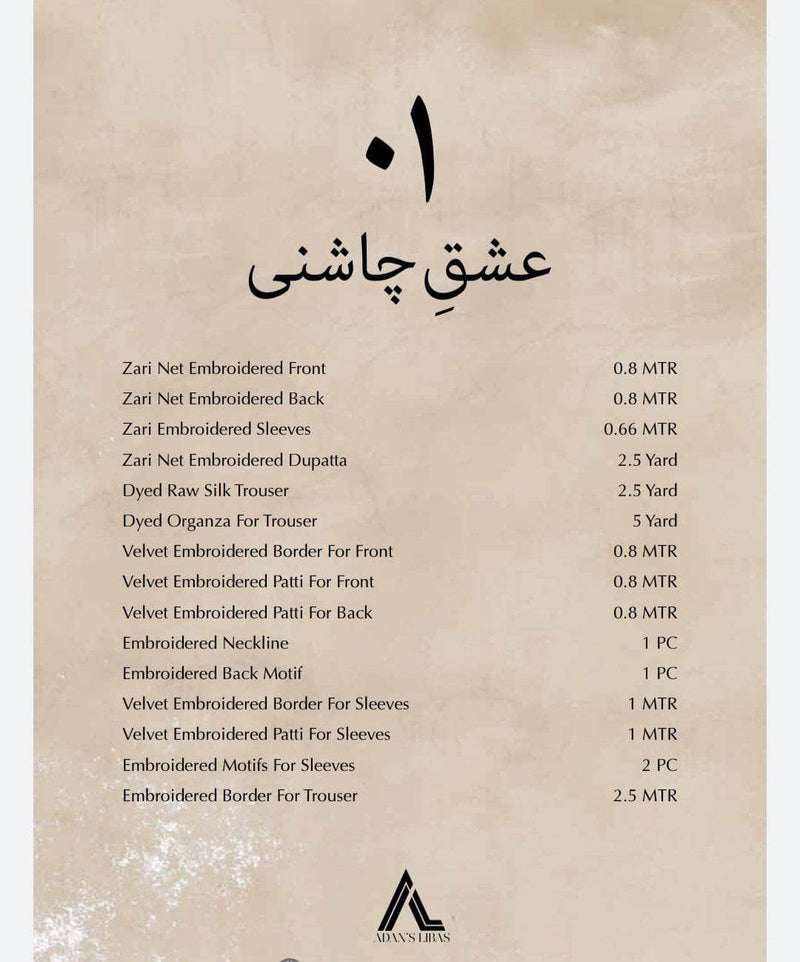 ۰۱
عشقِ چاشنی
Zari Net Embroidered Front 0.8 MTR
Zari Net Embroidered Back 0.8 MTR
Zari Embroidered Sleeves 0.66 MTR
Zari Net Embroidered Dupatta 2.5 Yard
Dyed Raw Silk Trouser 2.5 Yard
Dyed Organza For Trouser 5 Yard
Velvet Embroidered Border For Front 0.8 MTR
Velvet Embroidered Patti For Front 0.8 MTR
Velvet Embroidered Patti For Back 0.8 MTR
Embroidered Neckline 1 PC
Embroidered Back Motif 1 PC
Velvet Embroidered Border For Sleeves 1 MTR
Velvet Embroidered Patti For Sleeves 1 MTR
Embroidered Motifs For Sleeves 2 PC
Embroidered Border For Trouser 2.5 MTR
ADAN'S LIBAS